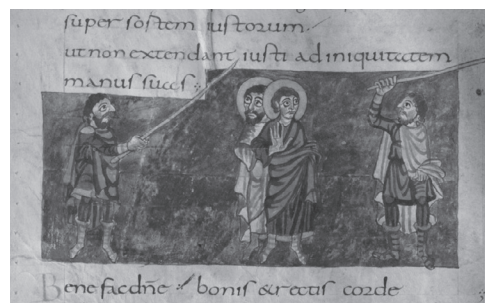 super sortem iustorum.
ut non extendant iusti ad iniquitatem
manus suas
Bene fac dne bonis & rectis corde